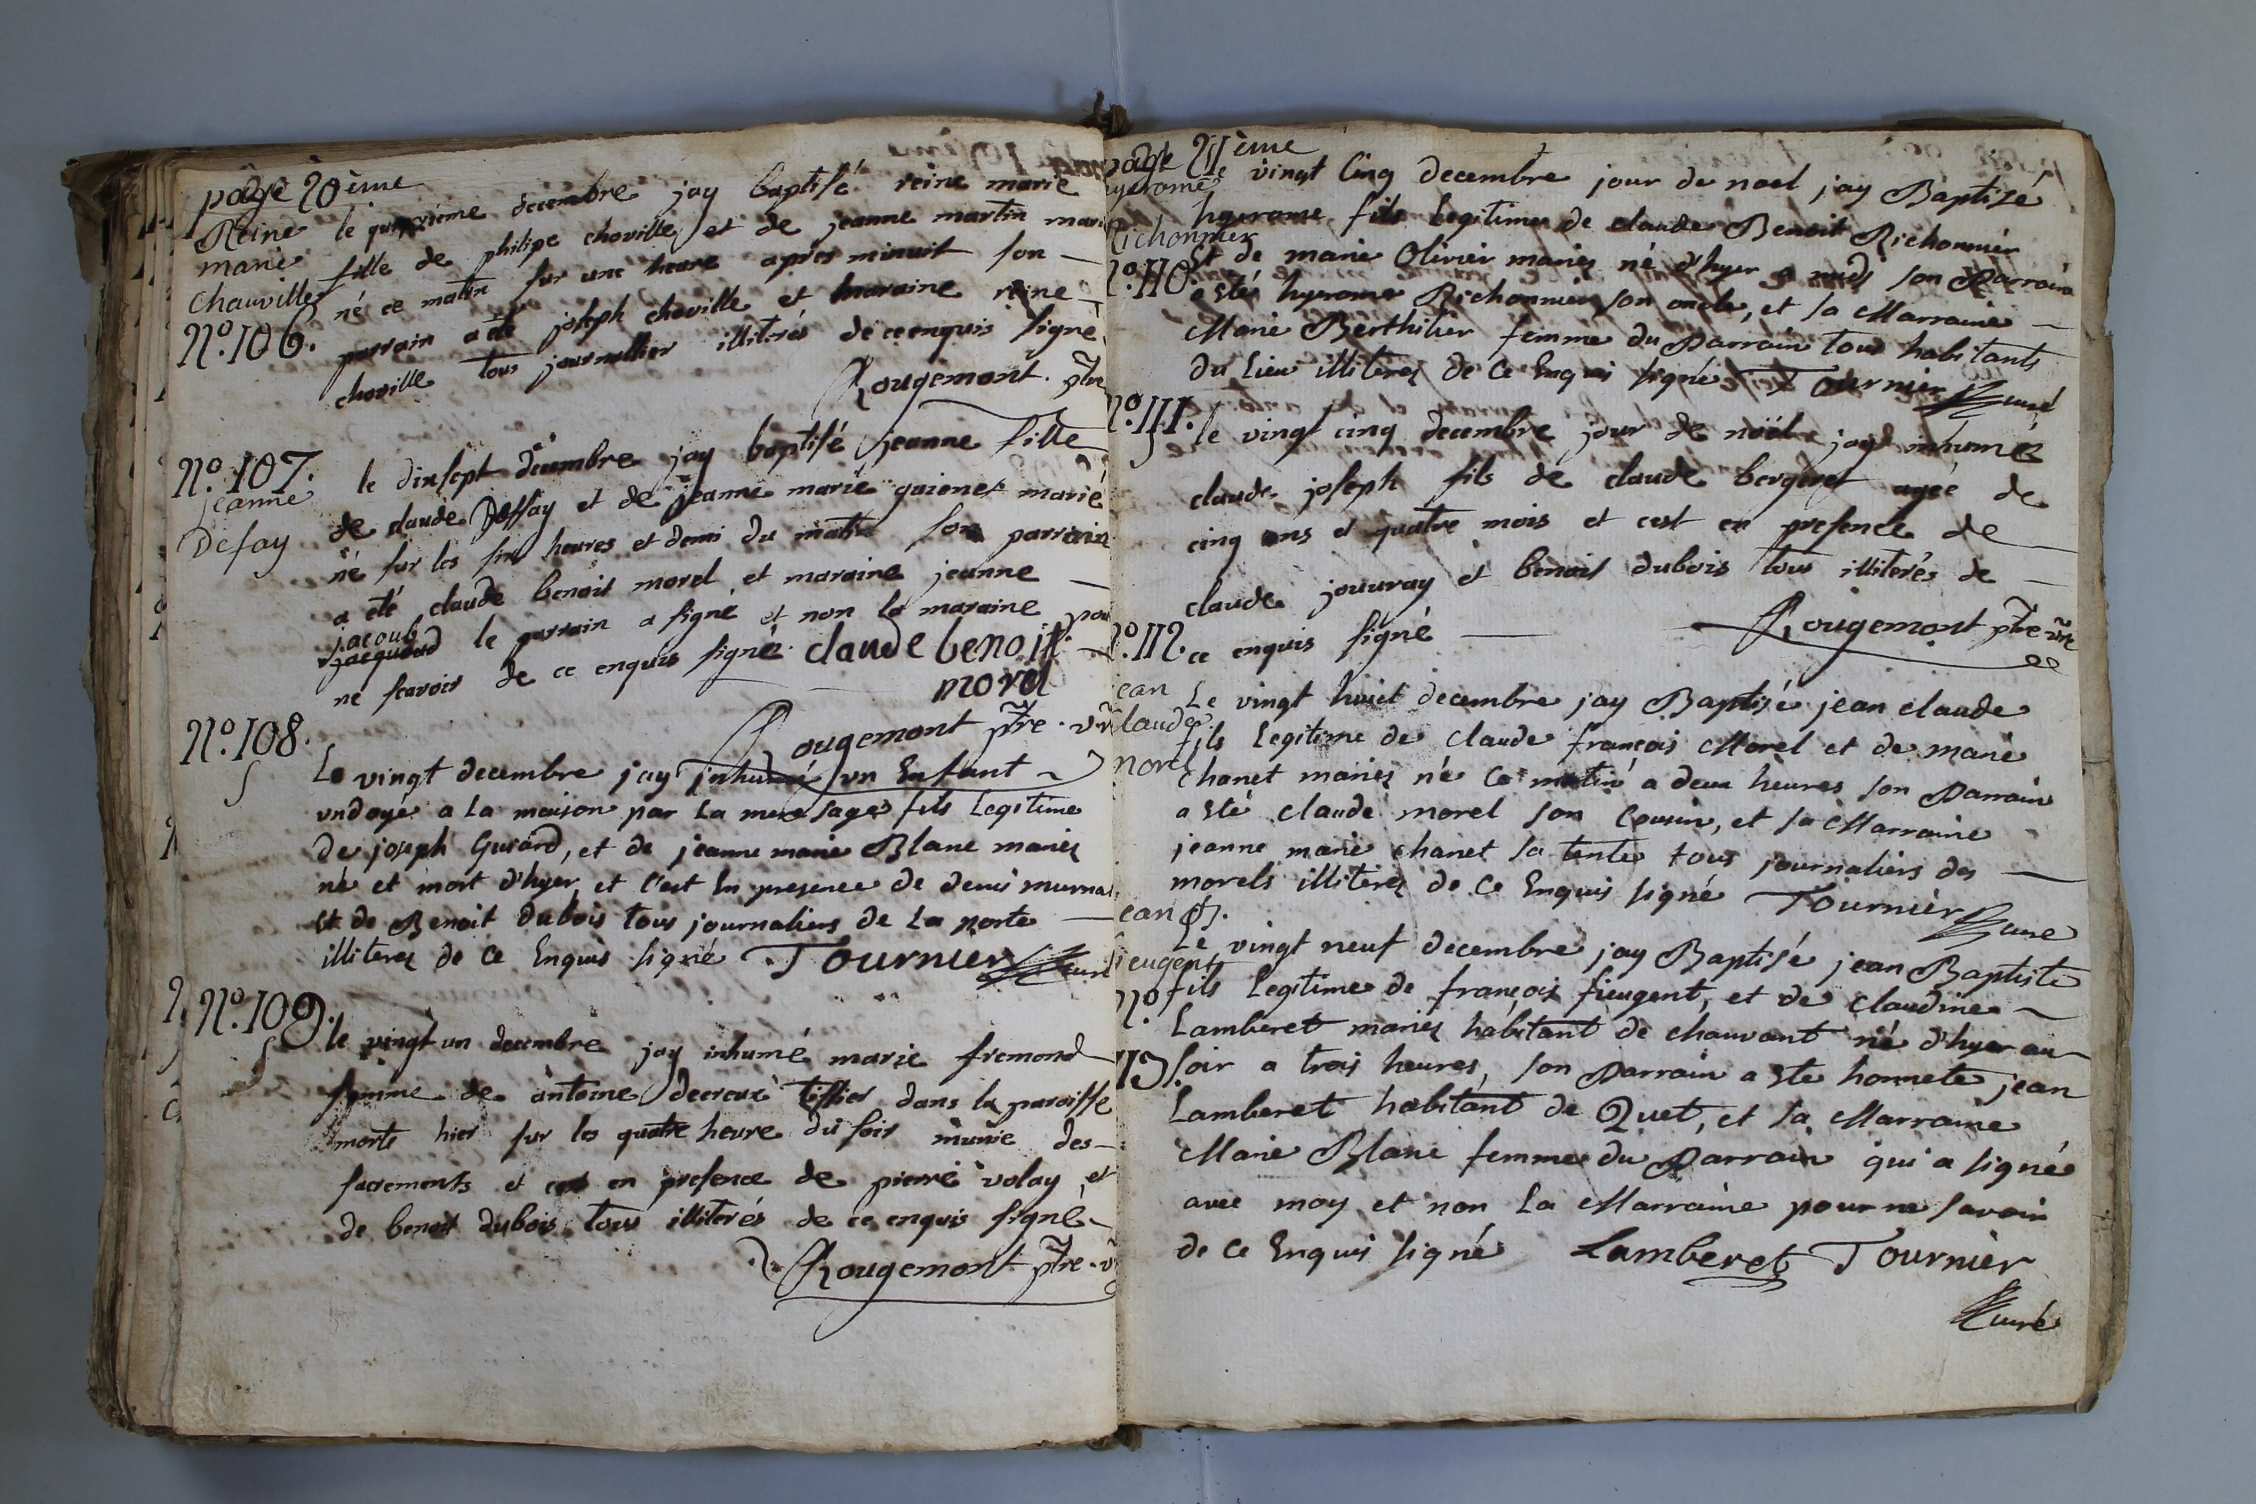 page 20ème
Reine marie Chauville
N.º 106.
le quinzième decembre jay baptisé reine marie
fille de philipe choville et de jeanne martin marié
né ce matin sur une heure apres minuit son
parrain a été joseph choville et maraine reine
choville tous journallier illiterés de ce enquis signé
Rougemont ptre
N.º 107.
jeanne Defay
le dixsept decembre jay baptisé jeanne fille
de claude Deffay et de jeanne marie gaionet marié
né sur les six heures et demi du matin son parrain
a été claude benoit morel et maraine jeanne
jacoub
jacquoud le parrain a signé et non la maraine pour
ne scavoir de ce enquis signé. claude benoit
morel
Rougemont ptre
N.º 108.
Le vingt decembre jay inhumé un Enfant
undoyé a la maison par la mere sage fils Legitime
De joseph Gurard, et de jeanne marie Blanc mariez
né et mort d'hyer, et c'est En presence de denis
Et de Benoit dubois tous journaliers de La porte
illiterez de Ce Enquis signé Tournier curé
N.º 109.
le vingt un decembre jay inhumé marie fremond
femme de antoine decreux tissier dans la paroisse
morte hier sur les quatre heure du soir munie des
sacrements et cest en presence de pierre volay et
de benoit dubois tous illiterés de ce enquis signé
Rougemont ptre
page 21ème
hyerome Richonnier
N.º 110.
Le vingt Cinq decembre jour de noel jay Baptizé
hyerome fils Legitime de claude Benoit Richonnier
Et de marie Olivier mariez né d'hyer a midi son Parrain
a Eté hyerome Richonnier son oncle, et sa Marraine
Marie Berthilier femme du Parrain tous habitants
du Lieu illiterez de Ce Enquis signé Tournier curé
N.º 111.
le vingt cinq decembre jour de noël jay inhumé
claude joseph fils de claude bergeret agée de
cinq ans et quatre mois et cest en presence de
claude jouvray et benoit dubois tous illiterés de
ce enquis signé
Rougemont ptre vre
N.º 112.
jean claude morel
Le vingt huit decembre jay Baptisé jean claude
fils Legitime de claude françois Morel et de marie
Chanet mariez né Ce matin a deux heures son Parrain
a Eté claude morel son Cousin, et sa Marraine
jeanne marie chanet sa tente tous journaliers des
morels illiterez de Ce Enquis signé Tournier curé
jean B.
fieugent
N.º
113
Le vingt neuf decembre jay Baptisé jean Baptiste
fils Legitime de françois fieugent, et de claudine
Lamberet mariez habitant de chauvant né d'hyer au
soir a trois heures, son Parrain a Ete honnete jean
Lamberet habitant de Quet, et sa Marraine
Marie Blanc femme du Parrain qui a signé
avec moy et non La Marraine pour ne savoir
de Ce Enquis signé Lamberet Tournier
curé